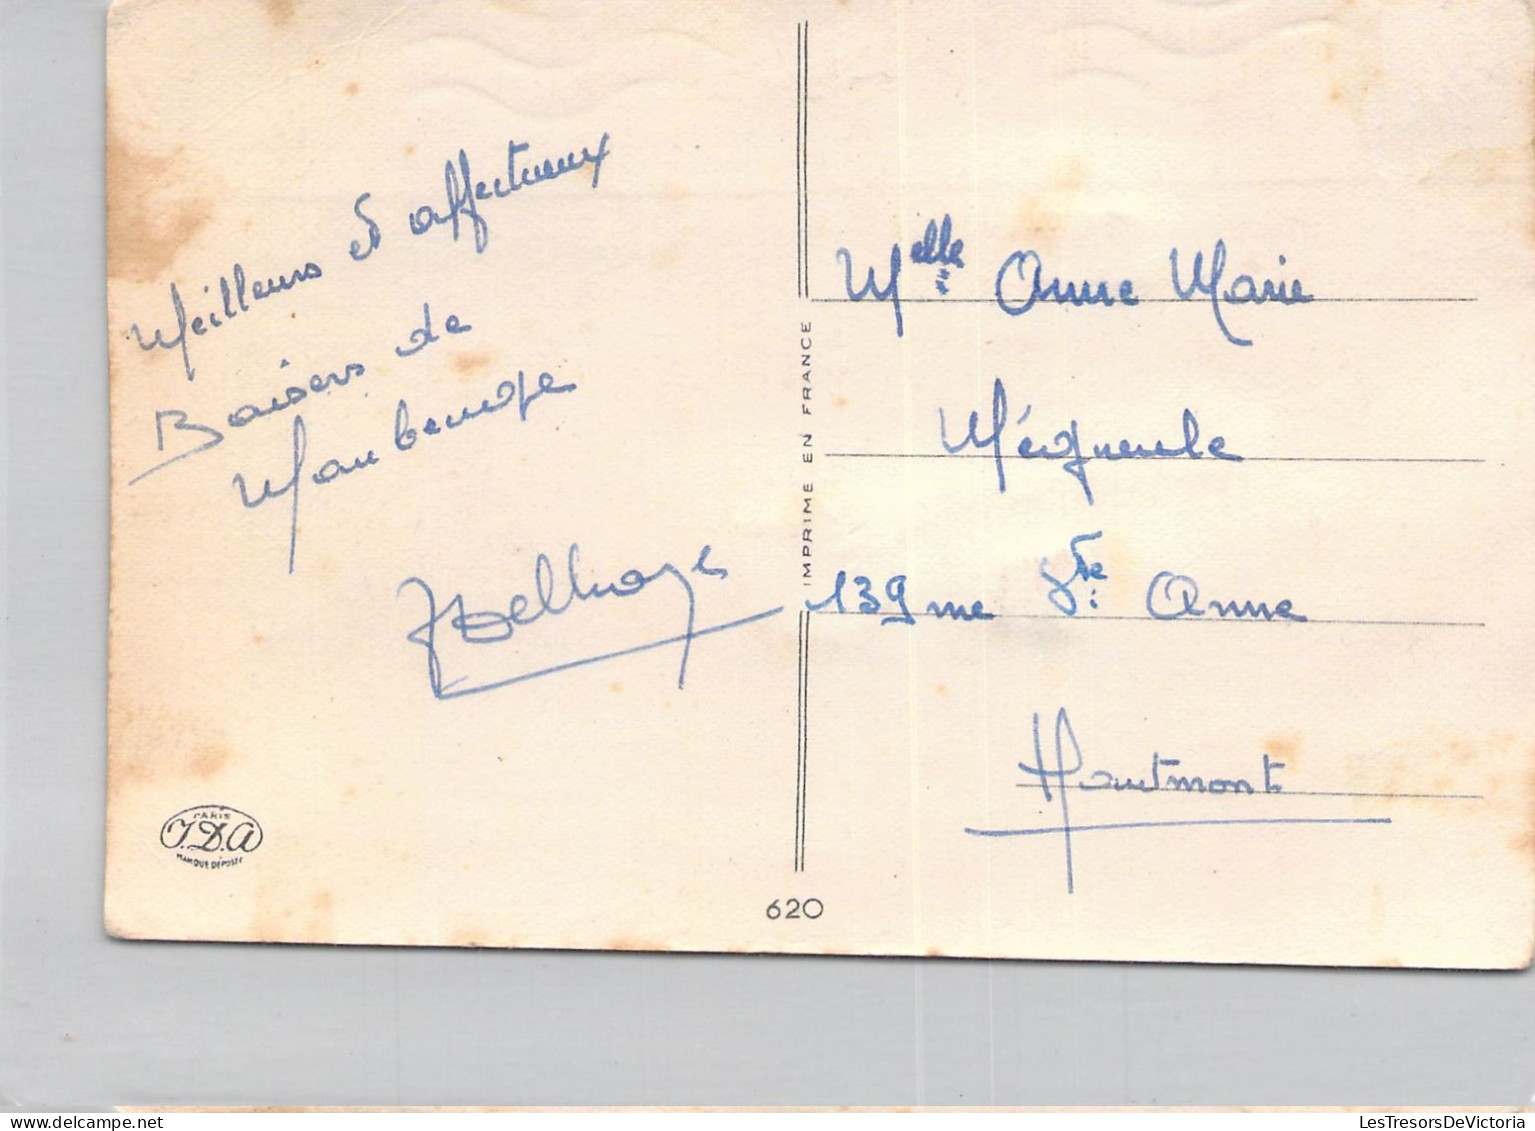 Meilleurs et affectueux
Baisers de
Maubeuge
JDelhaye
PARIS
J.D.A
MARQUE DÉPOSÉE
IMPRIME EN FRANCE
620
Melle Anne Marie
139 rue Ste Anne
Hautmont
LesTresorsDeVictoria